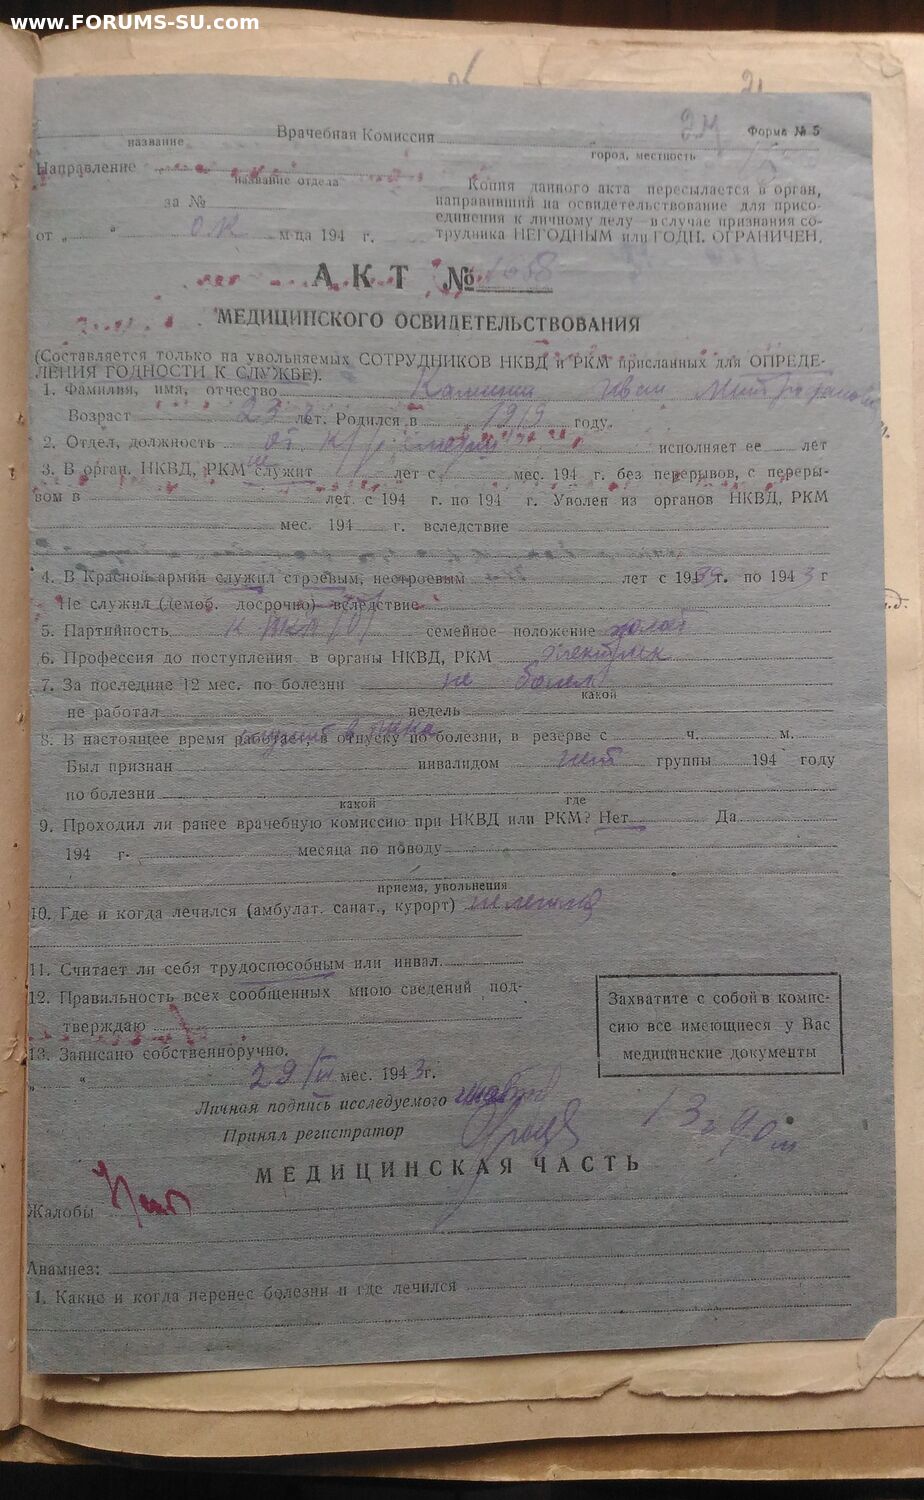 www.FORUMS-SU.com
24
Врачебная Комиссия
Форма № 5
название
город, местность
Направление
название отдела
Копия данного акта пересылается в орган,
за №
направивший на освидетельствование для присо-
единения к личному делу в случае признания со-
от „ “ О.К. м-ца 194 г.
трудника НЕГОДНЫМ или ГОДН. ОГРАНИЧЕН.
АКТ №
МЕДИЦИНСКОГО ОСВИДЕТЕЛЬСТВОВАНИЯ
(Составляется только на увольняемых СОТРУДНИКОВ НКВД и РКМ присланных для ОПРЕДЕ-
ЛЕНИЯ ГОДНОСТИ К СЛУЖБЕ).
1. Фамилия, имя, отчество Иван
Возраст 23 лет. Родился в 1919 году.
2. Отдел, должность исполняет ее лет
3. В орган. НКВД, РКМ не служит лет с мес. 194 г. без перерывов, с переры-
вом в лет. с 194 г. по 194 г. Уволен из органов НКВД, РКМ
мес. 194 г. вследствие
4. В Красной армии служил строевым, нестроевым лет с 1939 г. по 1943 г
Не служил (Демоб. досрочно) вследствие
5. Партийность семейное положение холост
6. Профессия до поступления в органы НКВД, РКМ
7. За последние 12 мес. по болезни не болел
какой
не работал недель
8. В настоящее время работает, в отпуску по болезни, в резерве с ч. м.
Был признан инвалидом нет группы 194 году
по болезни
какой где
9. Проходил ли ранее врачебную комиссию при НКВД или РКМ? Нет Да
194 г. месяца по поводу
приема, увольнения
10. Где и когда лечился (амбулат. санат., курорт) не лечился
11. Считает ли себя трудоспособным или инвал.
12. Правильность всех сообщенных мною сведений под-
тверждаю
Захватите с собой в комис-
сию все имеющиеся у Вас
медицинские документы
13. Записано собственноручно.
„ “ 29/III мес. 1943 г.
Личная подпись исследуемого
Принял регистратор
МЕДИЦИНСКАЯ ЧАСТЬ
Жалобы
Анамнез:
1. Какие и когда перенес болезни и где лечился